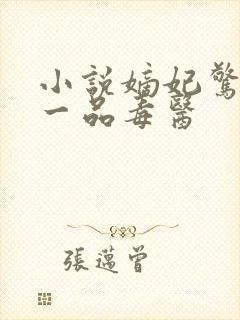 小說嫡妃驚
一品毒醫
張邁曾